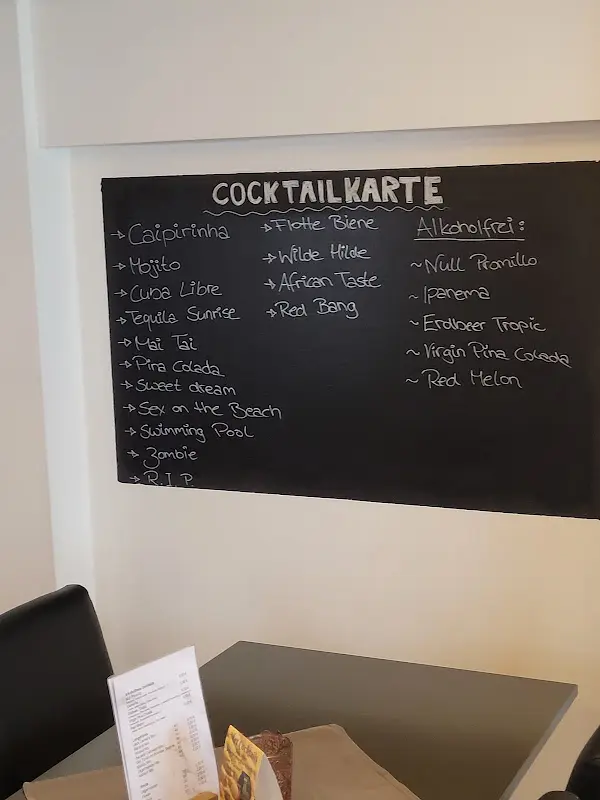 COCKTAILKARTE
→ Caipirinha
→ Mojito
→ Cuba Libre
→ Tequila Sunrise
→ Mai Tai
→ Pina Colada
→ Sweet dream
→ Sex on the Beach
→ Swimming Pool
→ Zombie
→ R.I.P.
→ Flotte Biene
→ Wilde Hilde
→ African Taste
→ Red Bang
Alkoholfrei:
~ Null Promillo
~ Ipanema
~ Erdbeer Tropic
~ Virgin Pina Colada
~ Red Melon